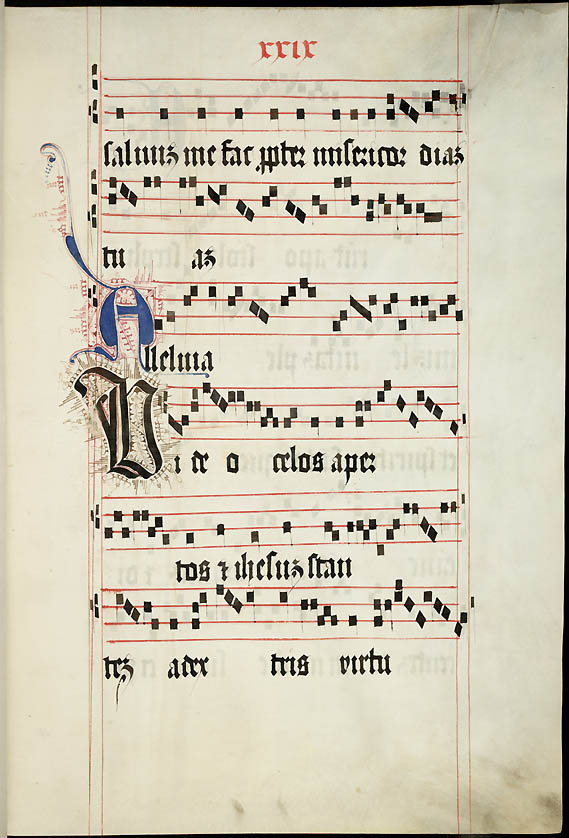 xxix
saluuz me fac ppter misericor diaz
tu az
Alleluia
Vi de o celos aper
tos ⁊ ihesuz stan
tez adex tris virtu